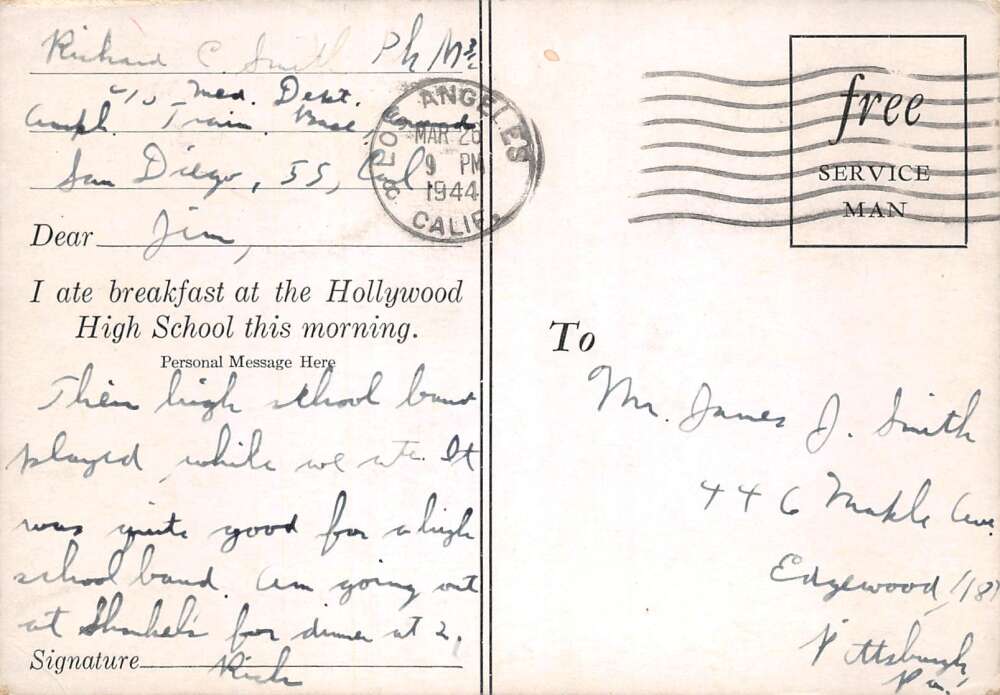 Richard C. Smith Ph M 3/c
c/o Med. Dept.
Amph. Train. Base, Coronado
San Diego, 55, Cal
LOS ANGELES
MAR 26
9 PM
1944
CALIF.
Dear Jim,
I ate breakfast at the Hollywood
High School this morning.
Personal Message Here
Their high school band
played while we ate. It
was quite good for a high
school band. Am going out
at for dinner at 2.
Signature Rich
free
SERVICE
MAN
To
Mr. James J. Smith
446 Maple Ave.
Edgewood, (18)
Pittsburgh
Pa.